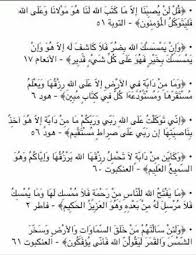 • ﴿قُل لَّن يُصِيبَنَا إِلاَّ مَا كَتَبَ اللَّهُ لَنَا هُوَ مَوْلَانَا وَعَلَى اللَّهِ
فَلْيَتَوَكَّلِ الْمُؤْمِنُونَ﴾ - التوبة ٥١
• ﴿وَإِن يَمْسَسْكَ اللَّهُ بِضُرٍّ فَلاَ كَاشِفَ لَهُ إِلاَّ هُوَ وَإِن
يَمْسَسْكَ بِخَيْرٍ فَهُوَ عَلَى كُلِّ شَيْءٍ قَدِيرٌ﴾ - الأنعام ١٧
• ﴿وَمَا مِن دَآبَّةٍ فِي الأَرْضِ إِلاَّ عَلَى اللَّهِ رِزْقُهَا وَيَعْلَمُ
مُسْتَقَرَّهَا وَمُسْتَوْدَعَهَا كُلٌّ فِي كِتَابٍ مُّبِينٍ﴾ - هود ٦
• ﴿إِنِّي تَوَكَّلْتُ عَلَى اللَّهِ رَبِّي وَرَبِّكُم مَّا مِن دَآبَّةٍ إِلاَّ هُوَ آخِذٌ
بِنَاصِيَتِهَا إِنَّ رَبِّي عَلَى صِرَاطٍ مُّسْتَقِيمٍ﴾ - هود ٥٦
• ﴿وَكَأَيِّن مِن دَآبَّةٍ لَا تَحْمِلُ رِزْقَهَا اللَّهُ يَرْزُقُهَا وَإِيَّاكُمْ وَهُوَ
السَّمِيعُ الْعَلِيمُ﴾ - العنكبوت ٦٠
• ﴿مَا يَفْتَحِ اللَّهُ لِلنَّاسِ مِن رَّحْمَةٍ فَلَا مُمْسِكَ لَهَا وَمَا يُمْسِكْ
فَلَا مُرْسِلَ لَهُ مِن بَعْدِهِ وَهُوَ الْعَزِيزُ الْحَكِيمُ﴾ - فاطر ٢
• ﴿وَلَئِن سَأَلْتَهُم مَّنْ خَلَقَ السَّمَاوَاتِ وَالْأَرْضَ وَسَخَّرَ
الشَّمْسَ وَالْقَمَرَ لَيَقُولُنَّ اللَّهُ فَأَنَّى يُؤْفَكُونَ﴾ - العنكبوت ٦١